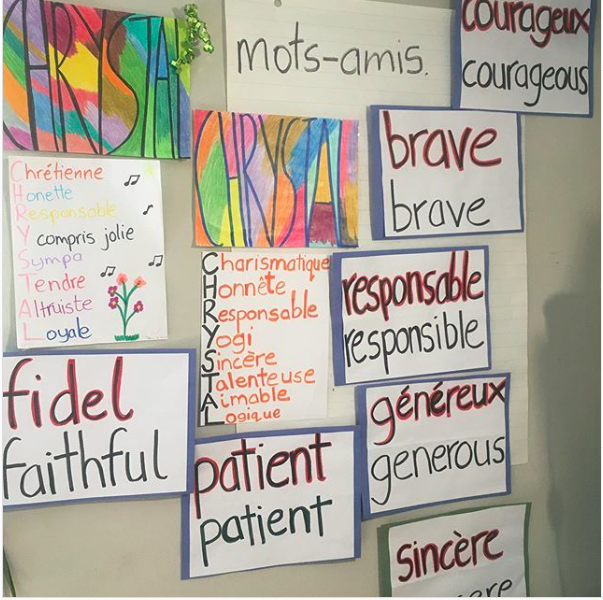 CHRYSTAL
mots-amis.
courageux
courageous
CHRYSTAL
brave
brave
Chrétienne
Honette
Responsable
Y compris jolie
Sympa
Tendre
Altruiste
Loyale
Charismatique
Honnête
Responsable
Yogi
Sincère
Talenteuse
Aimable
Logique
responsable
responsible
fidel
faithful
généreux
generous
patient
patient
sincère